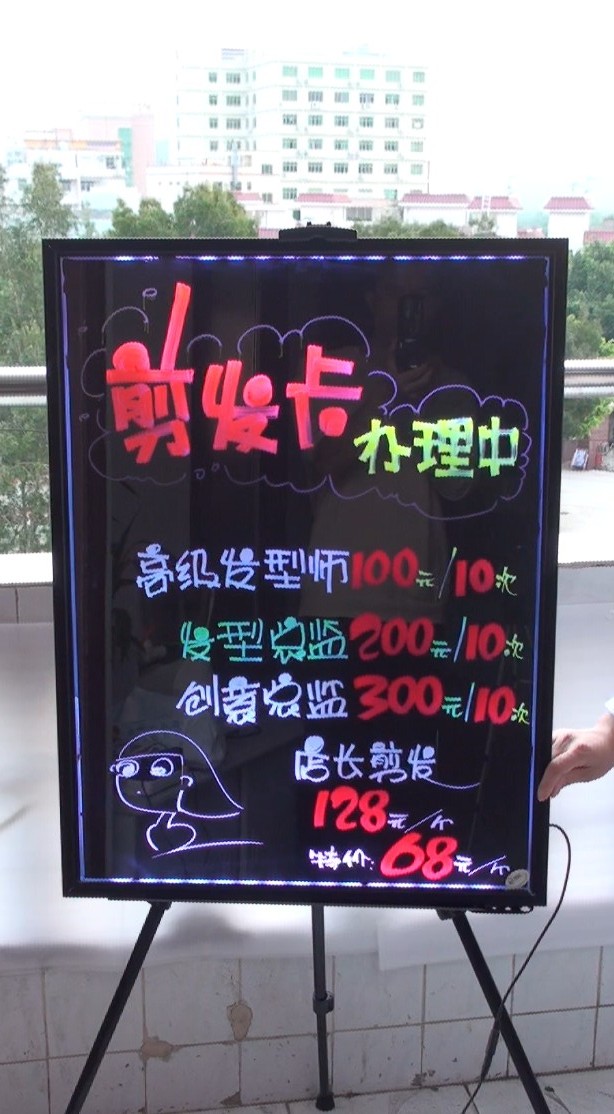 剪发卡
办理中
高级发型师100元/10次
发型总监200元/10次
创意总监300元/10次
店长剪发
128元/个
特价:68元/个